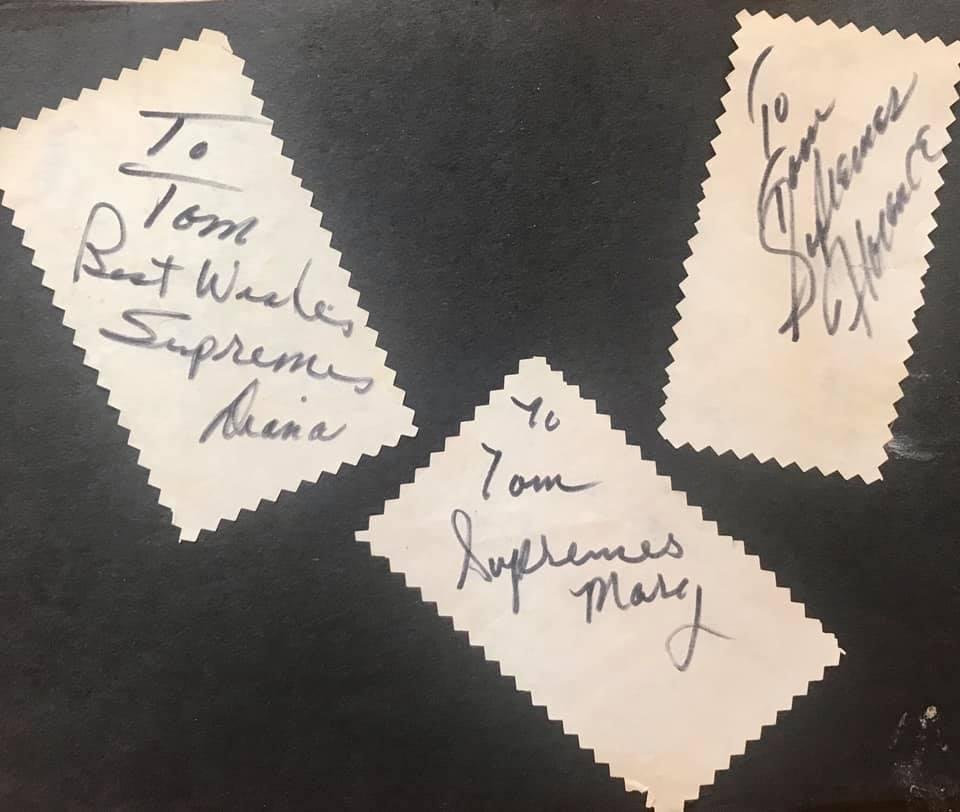 To
Tom
Best Wishes
Supremes
Diana
To
Tom
Supremes
Mary
To
Tom
Supremes
Florence